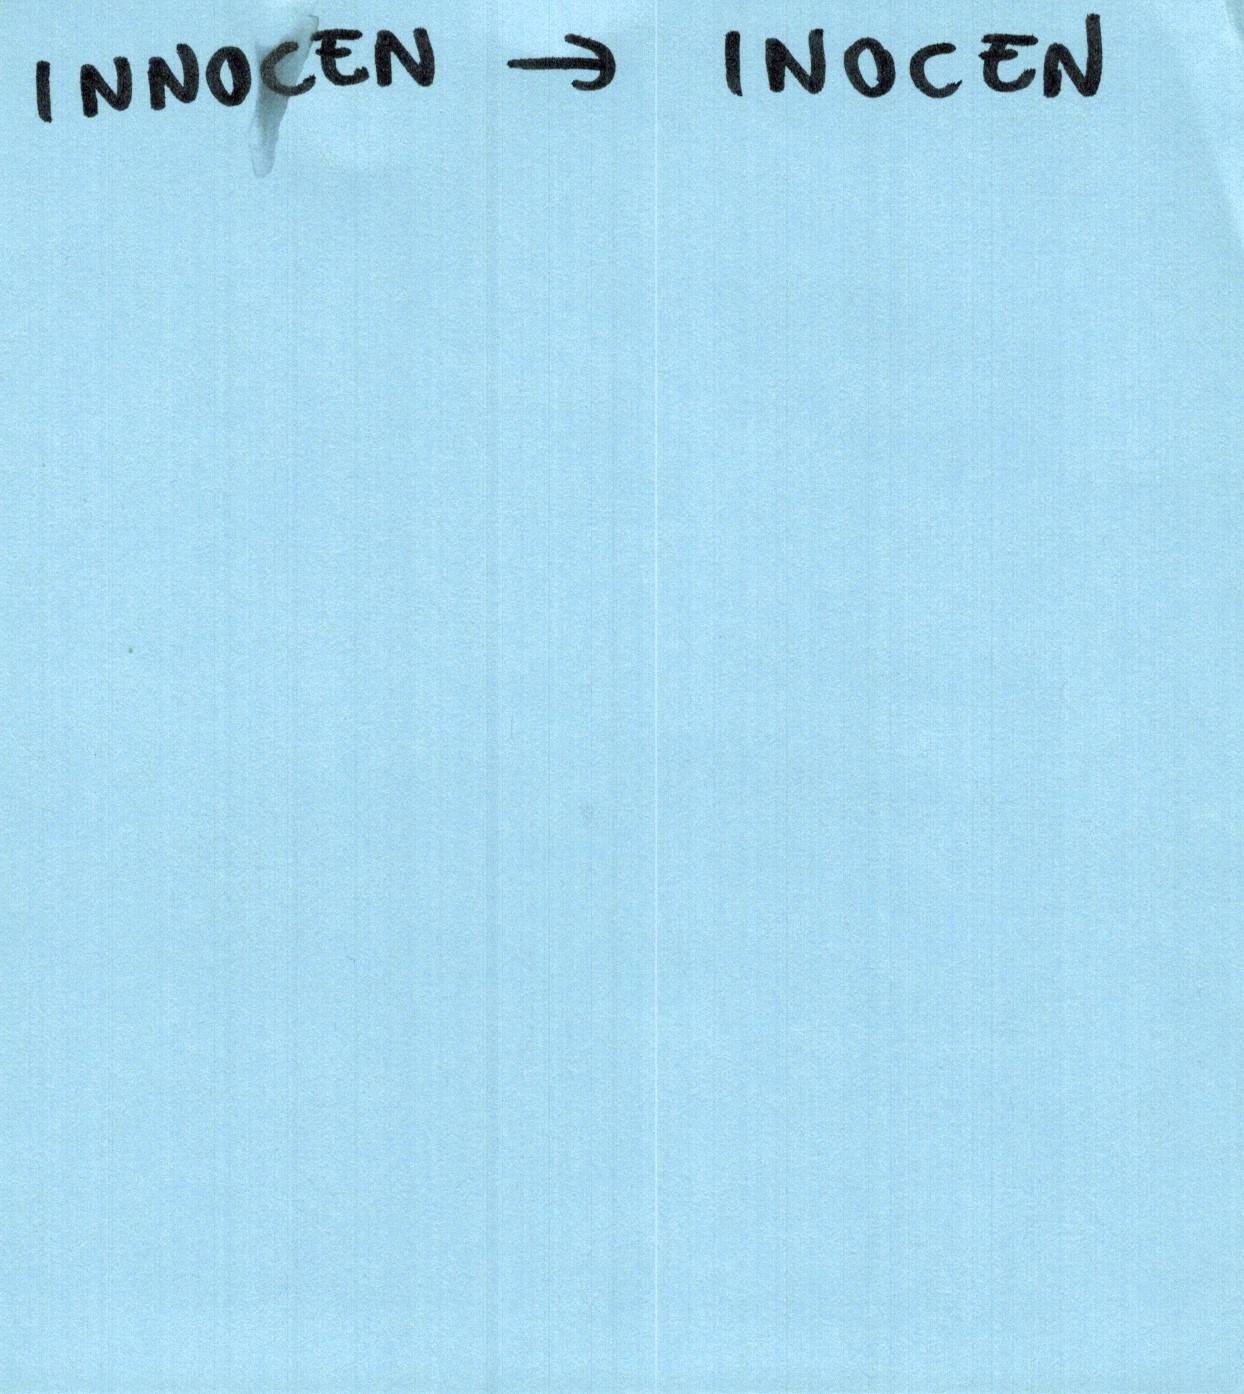 INNOCEN → INOCEN